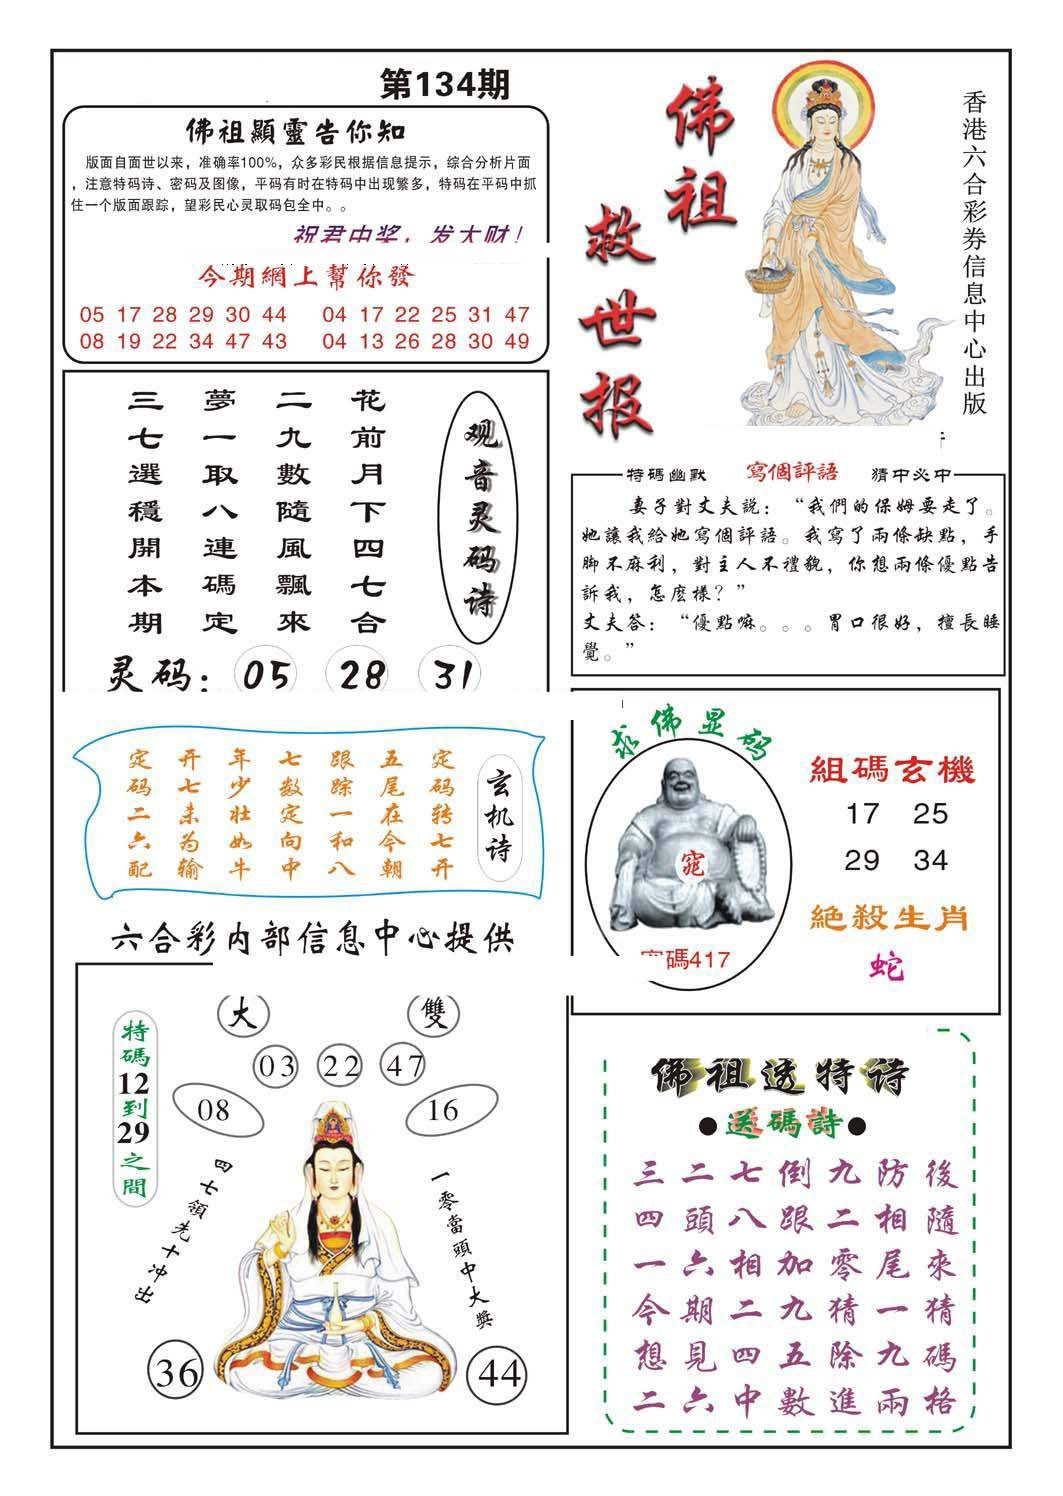 第134期
佛祖顯靈告你知
版面自面世以来，准确率100%，众多彩民根据信息提示，综合分析片面
，注意特码诗、密码及图像，平码有时在特码中出现繁多，特码在平码中抓
住一个版面跟踪，望彩民心灵取码包全中。。
祝君中奖，发大财！
今期網上幫你發
05 17 28 29 30 44 04 17 22 25 31 47
08 19 22 34 47 43 04 13 26 28 30 49
佛祖
救世报
香港六合彩券信息中心出版
观音灵码诗
花前月下四七合
二九數隨風飄來
夢一取八連碼定
三七選穩開本期
灵码：05 28 31
特碼幽默 寫個評語 猜中必中
妻子對丈夫説：“我們的保姆要走了。
她讓我給她寫個評語。我寫了兩條缺點，手
脚不麻利，對主人不禮貌，你想兩條優點告
訴我，怎麽樣？”
丈夫答：“優點嘛。。。胃口很好，擅長睡
覺。”
玄机诗
定码转七开
五尾在今朝
跟踪一和八
七数定向中
年少壮如牛
开七未为输
定码二六配
求佛显码
窕
碼417
組碼玄機
17 25
29 34
絶殺生肖
蛇
六合彩内部信息中心提供
大 雙
03 22 47
08 16
特碼12到29之間
四七領先十冲出
一零當頭中大獎
36 44
佛祖透特诗
●送碼詩●
三二七倒九防後
四頭八跟二相隨
一六相加零尾來
今期二九猜一猜
想見四五除九碼
二六中數進兩格